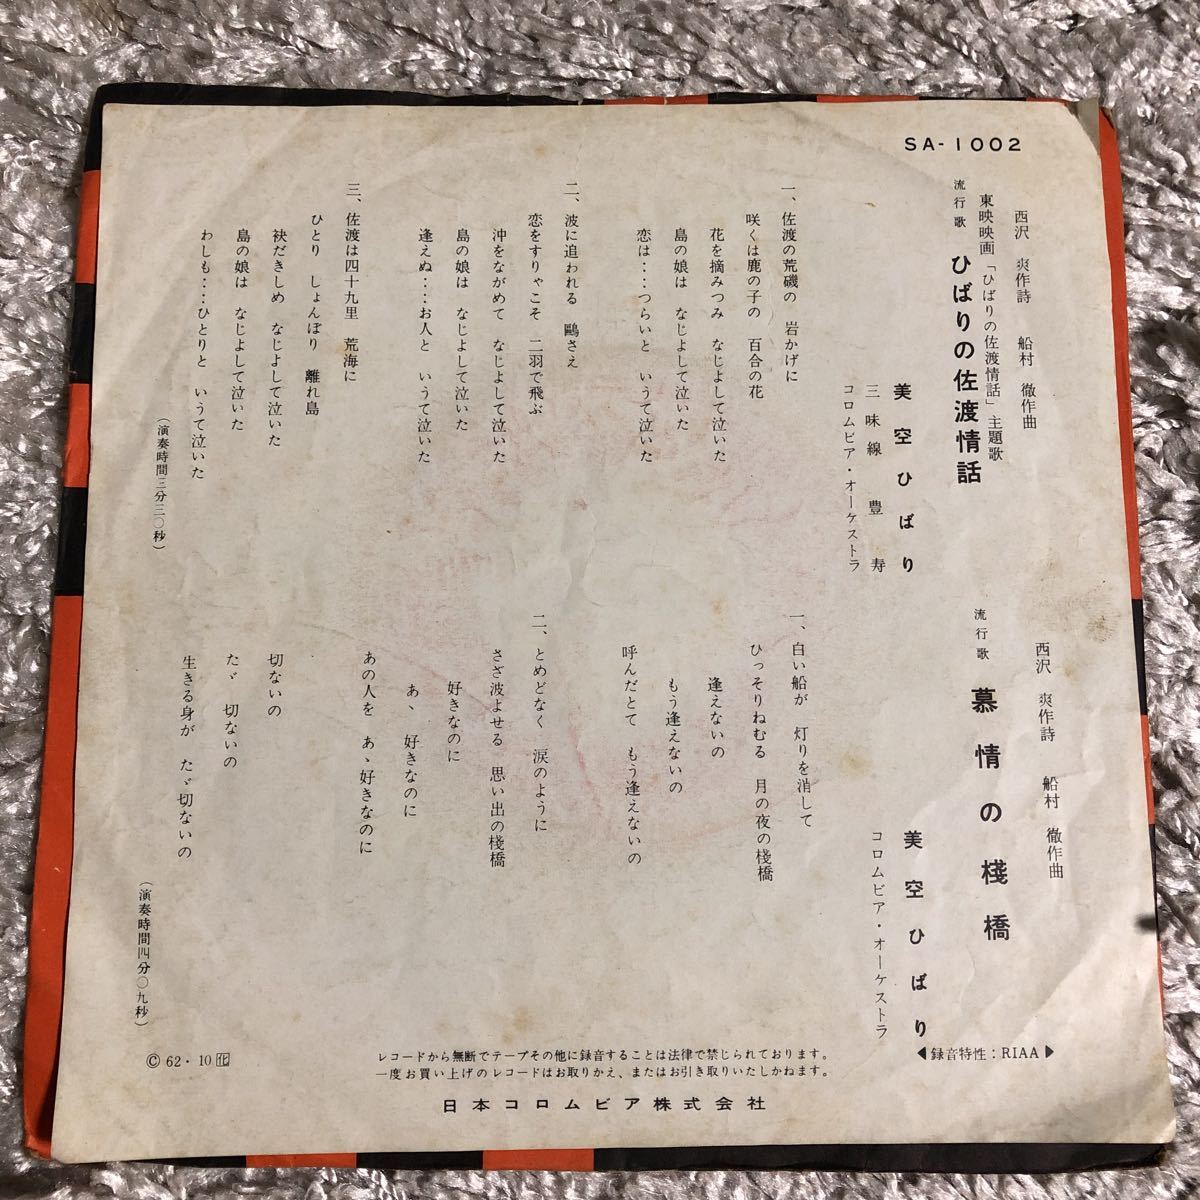 SA-1002
西沢 爽作詩 船村 徹作曲
東映映画「ひばりの佐渡情話」主題歌
流行歌 ひばりの佐渡情話
美空ひばり
三味線 豊寿
コロムビア・オーケストラ
一、佐渡の荒磯の 岩かげに
咲くは鹿の子の 百合の花
花を摘みつみ なじよして泣いた
島の娘は なじよして泣いた
恋は‥‥つらいと いうて泣いた
二、波に追われる 鷗さえ
恋をすりゃこそ 二羽で飛ぶ
沖をながめて なじよして泣いた
島の娘は なじよして泣いた
逢えぬ‥‥お人と いうて泣いた
三、佐渡は四十九里 荒海に
ひとり しょんぼり 離れ島
袂だきしめ なじよして泣いた
島の娘は なじよして泣いた
わしも‥‥ひとりと いうて泣いた
（演奏時間三分三〇秒）
西沢 爽作詩 船村 徹作曲
流行歌 慕情の棧橋
美空ひばり
コロムビア・オーケストラ
一、白い船が 灯りを消して
ひっそりねむる 月の夜の棧橋
逢えないの
もう逢えないの
呼んだとて もう逢えないの
二、とめどなく 涙のように
さざ波よせる 思い出の棧橋
好きなのに
あゝ 好きなのに
あの人を あゝ好きなのに
切ないの
たゞ 切ないの
生きる身が たゞ切ないの
（演奏時間四分〇九秒）
◀録音特性：RIAA▶
レコードから無断でテープその他に録音することは法律で禁じられております。
一度お買い上げのレコードはお取りかえ、またはお引き取りいたしかねます。
日本コロムビア株式会社
Ⓒ 62・10 化